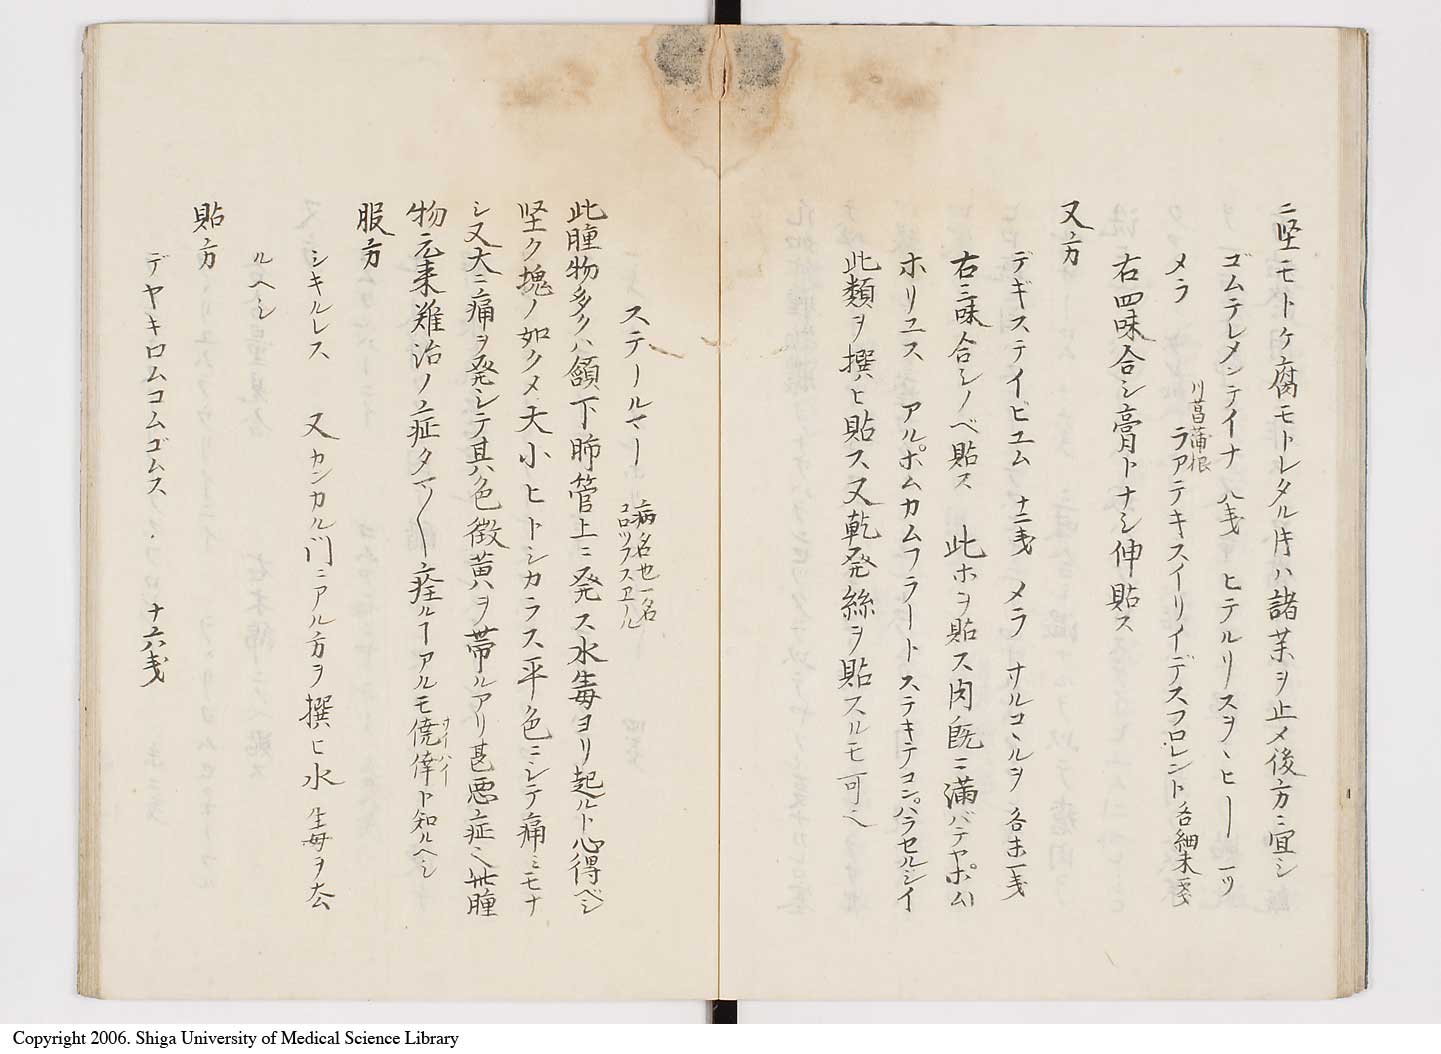 ニ坚モトケ腐モトレタル片ハ諸薬ヲ止メ後方ニ宜シ
ゴムテレメンテイナ 八戔 ヒテルリスヲヽヒー 一ツ
メラ ラアテキスイリイデスフロレント 各細末一戔
川菖蒲根
右四味合シ膏トナシ伸貼ス
又方
デギステイビユム 十二戔 メラ サルコヽルヲ 各末一戔
右三味合シノベ貼ス 此ホヲ貼ス肉既ニ満バテヤポム
ホリユス アルポムカムフラート ステキテコンパラセルシイ
此類ヲ撰ヒ貼ス又乾発絲ヲ貼スルモ可ヘ
ステールマー 病名也一名コロツフスヱール
此腫物多クハ頷下肺管上ニ発ス水毒ヨリ起ルト心得ベシ
坚ク塊ノ如クメ大小ヒトシカラス平色ニシテ痛ミモナ
シ又大ニ痛ヲ発シテ其ハ色微黄ハヲ帯ルアリ甚悪症也此腫
物元来難治ノ症タマ〱痊ルーアルモ僥倖ト知ルヘシ
ケイハイ
服方
シキルレス 又カンカル門ニアル方ヲ撰ヒ水生毎ヲ去
ルヘシ
貼方
デヤキロムコムゴムス 十六戔
Copyright 2006. Shiga University of Medical Science Library